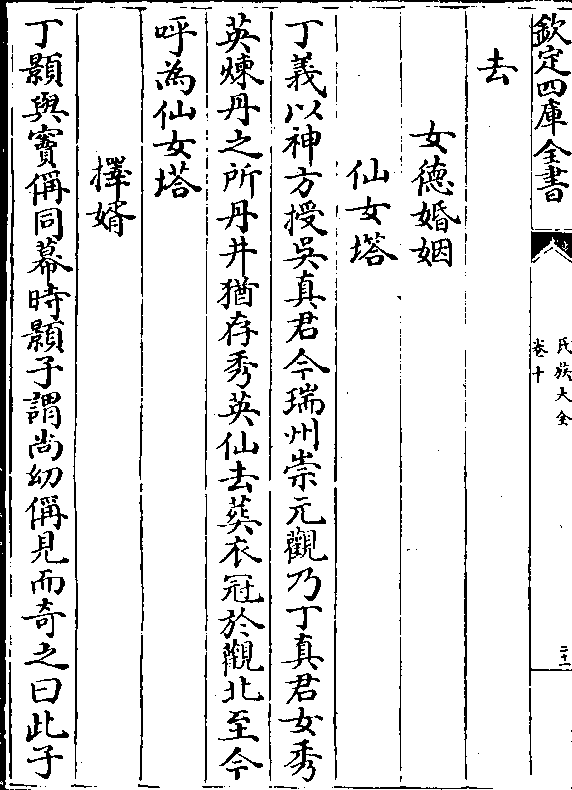 欽定四庫全書
氏族大全
卷十
二十一
去
女德婚姻
仙女塔
丁義以神方授吳真君今瑞州崇元觀乃丁真君女秀
英煉丹之所丹井猶存秀英仙去葬衣冠於觀北至今
呼為仙女塔
擇婿
丁顥與竇偁同幕時顥子謂尚幼偁見而奇之曰此子